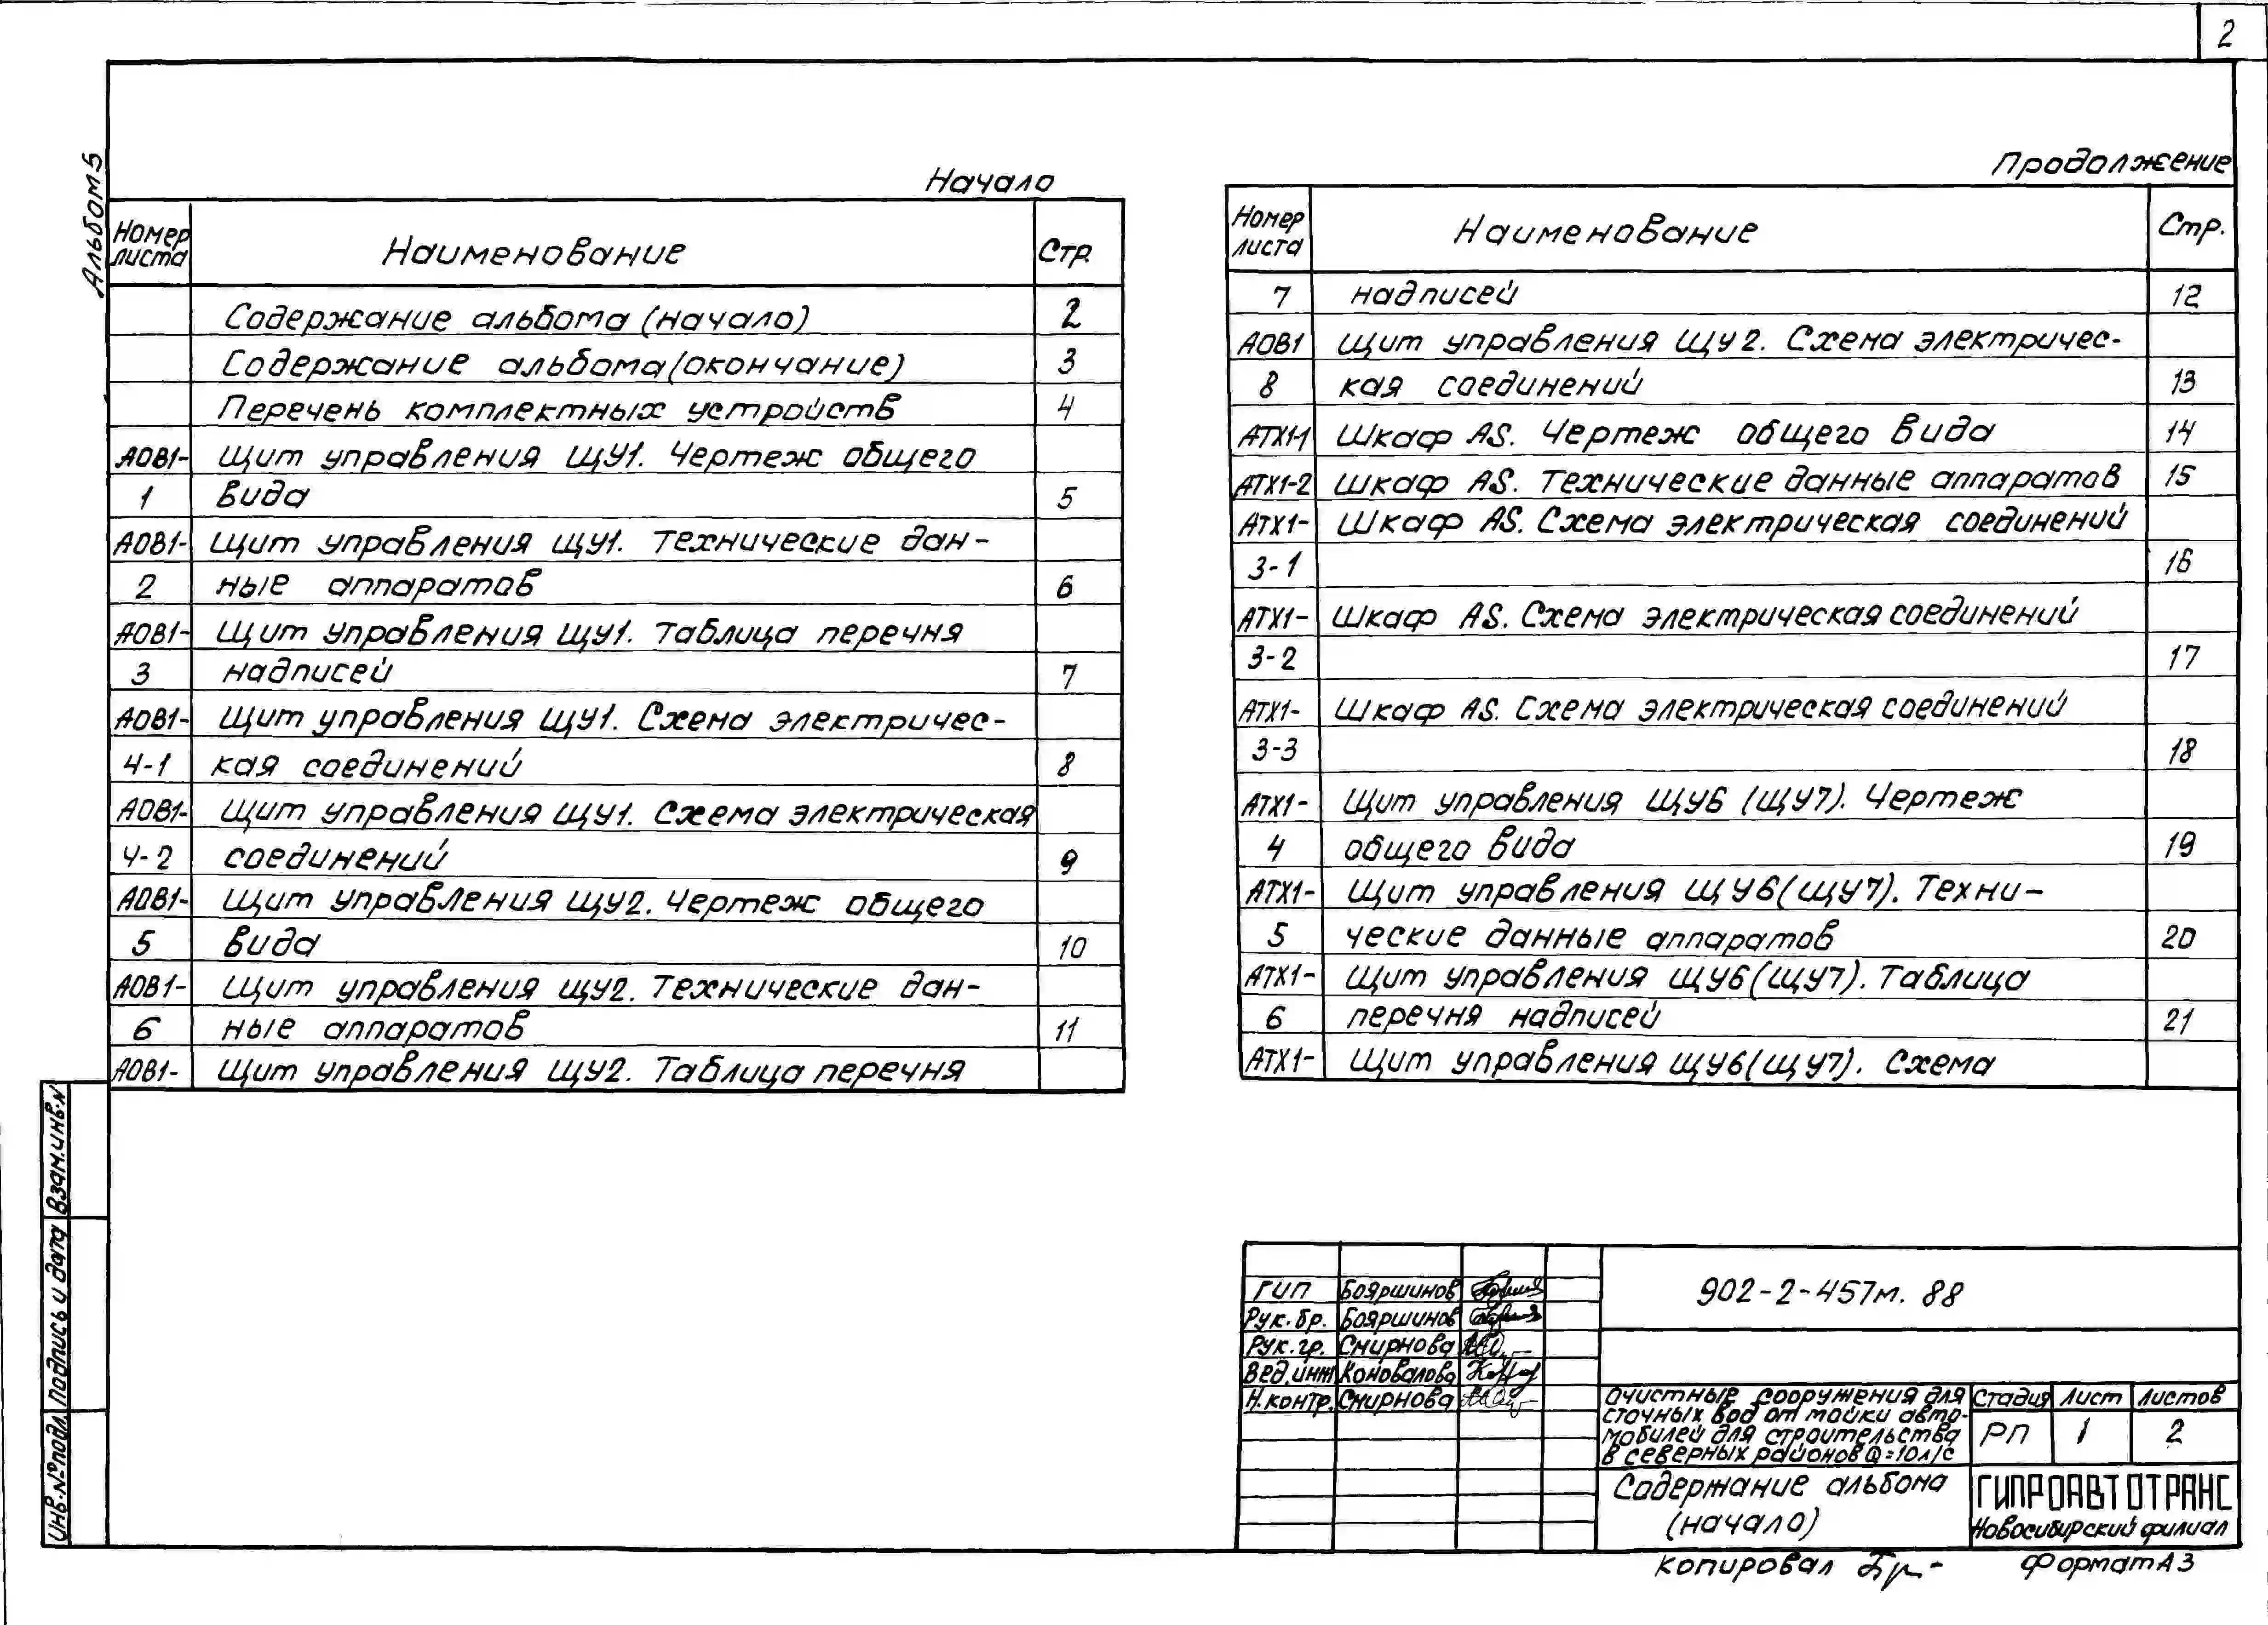 2
Альбом 5
Начало
Номер листа | Наименование | Стр.
Содержание альбома (начало) | 2
Содержание альбома (окончание) | 3
Перечень комплектных устройств | 4
АОВ1- | Щит управления ЩУ1. Чертеж общего
1 | вида | 5
АОВ1- | Щит управления ЩУ1. Технические дан-
2 | ные аппаратов | 6
АОВ1- | Щит управления ЩУ1. Таблица перечня
3 | надписей | 7
АОВ1- | Щит управления ЩУ1. Схема электричес-
4-1 | кая соединений | 8
АОВ1- | Щит управления ЩУ1. Схема электрическая
4-2 | соединений | 9
АОВ1- | Щит управления ЩУ2. Чертеж общего
5 | вида | 10
АОВ1- | Щит управления ЩУ2. Технические дан-
6 | ные аппаратов | 11
АОВ1- | Щит управления ЩУ2. Таблица перечня
Продолжение
Номер листа | Наименование | Стр.
7 | надписей | 12
АОВ1 | Щит управления ЩУ2. Схема электричес-
8 | кая соединений | 13
АТХ1-1 | Шкаф AS. Чертеж общего вида | 14
АТХ1-2 | Шкаф AS. Технические данные аппаратов | 15
АТХ1- | Шкаф AS. Схема электрическая соединений
3-1 | 16
АТХ1- | Шкаф AS. Схема электрическая соединений
3-2 | 17
АТХ1- | Шкаф AS. Схема электрическая соединений
3-3 | 18
АТХ1- | Щит управления ЩУ6 (ЩУ7). Чертеж
4 | общего вида | 19
АТХ1- | Щит управления ЩУ6 (ЩУ7). Техни-
5 | ческие данные аппаратов | 20
АТХ1- | Щит управления ЩУ6 (ЩУ7). Таблица
6 | перечня надписей | 21
АТХ1- | Щит управления ЩУ6 (ЩУ7). Схема
Взам.инв.№
Подпись и дата
Инв.№подл.
ГИП | Бояршинов
Рук.бр. | Бояршинов
Рук.гр. | Смирнова
Вед.инж | Коновалова
Н.контр. | Смирнова
902-2-457м.88
Очистные сооружения для
сточных вод от мойки авто-
мобилей для строительства
в северных районов Q=10л/с
Стадия | Лист | Листов
РП | 1 | 2
Содержание альбома
(начало)
ГИПРОАВТОТРАНС
Новосибирский филиал
Копировал
Формат А3